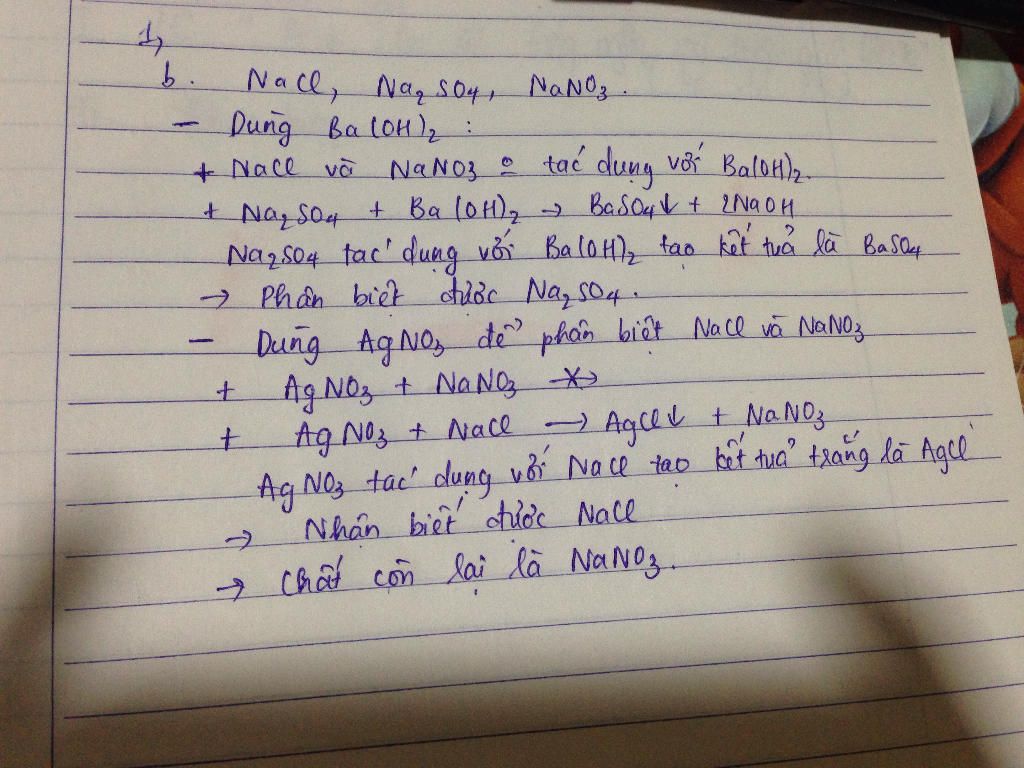 1,
b. NaCl, Na₂SO₄, NaNO₃.
- Dùng Ba(OH)₂ :
+ NaCl và NaNO₃ o tác dụng với Ba(OH)₂.
+ Na₂SO₄ + Ba(OH)₂ → BaSO₄↓ + 2NaOH
Na₂SO₄ tác dụng với Ba(OH)₂ tạo kết tủa là BaSO₄
→ Phân biệt được Na₂SO₄.
- Dùng AgNO₃ để phân biệt NaCl và NaNO₃
+ AgNO₃ + NaNO₃ -x->
+ AgNO₃ + NaCl → AgCl↓ + NaNO₃
AgNO₃ tác dụng với NaCl tạo kết tủa trắng là AgCl
→ Nhận biết được NaCl
→ Chất còn lại là NaNO₃.